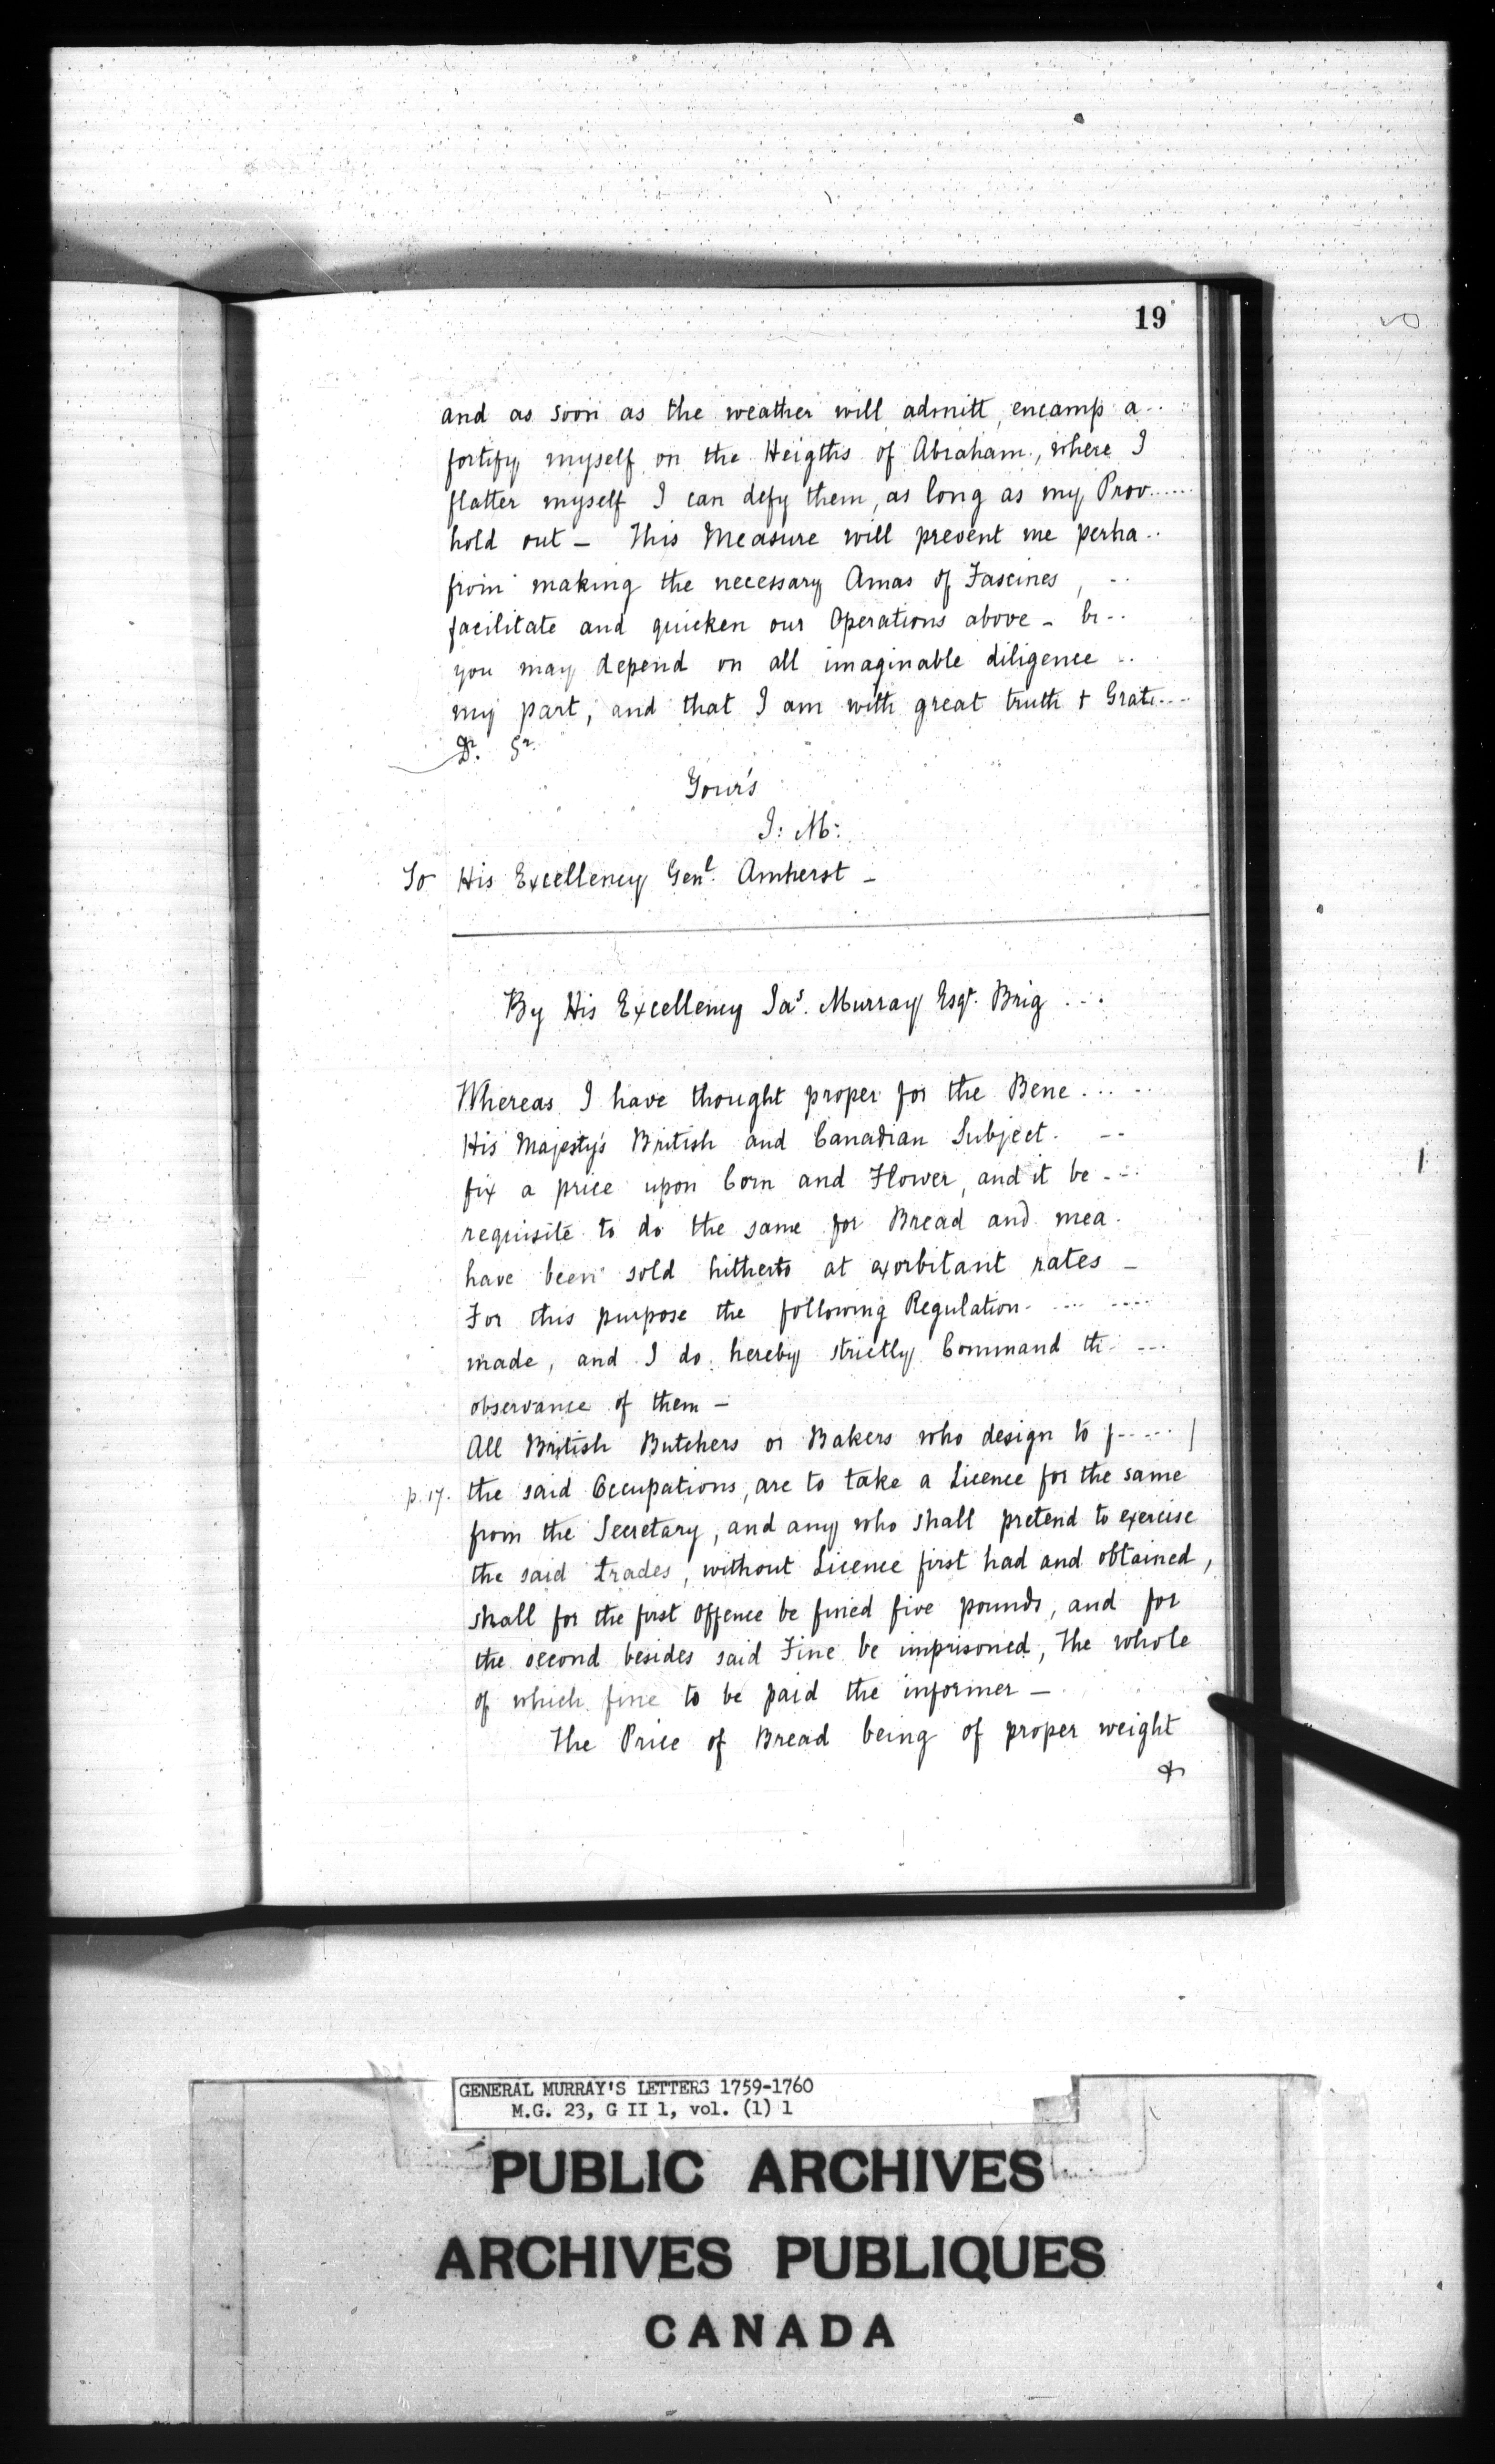 19
and as soon as the weather will admitt, encamp a..
fortify myself on the Heigths of Abraham, where I
flatter myself I can defy them, as long as my Prov......
hold out - This Measure will prevent me perha..
from making the necessary Amas of Fascines, ..
facilitate and quicken our Operations above - b...
you may depend on all imaginable diligence ..
my part, and that I am with great truth + Grati...
Dr. Sr.
Your's
J: M:
To His Excellency Genl. Amherst -
By His Excellency Jas. Murray Esqr. Brig ...
Whereas I have thought proper for the Bene.....
His Majesty's British and Canadian Subject. --
fix a price upon Corn and Flower, and it be ...
requisite to do the same for Bread and mea.
have been sold hitherto at exorbitant rates -
For this purpose the following Regulation. .... ....
made, and I do hereby strictly Command th ...
observance of them -
All British Butchers or Bakers who design to p.....
p. 17. the said Occupations, are to take a Licence for the same
from the Secretary, and any who shall pretend to exercise
the said trades, without Licence first had and obtained,
shall for the first Offence be fined five pounds, and for
the second besides said Fine be imprisoned, The whole
of which fine to be paid the informer -
The Price of Bread being of proper weight
&
GENERAL MURRAY'S LETTERS 1759-1760
M.G. 23, G II 1, vol. (1) 1
PUBLIC ARCHIVES
ARCHIVES PUBLIQUES
CANADA